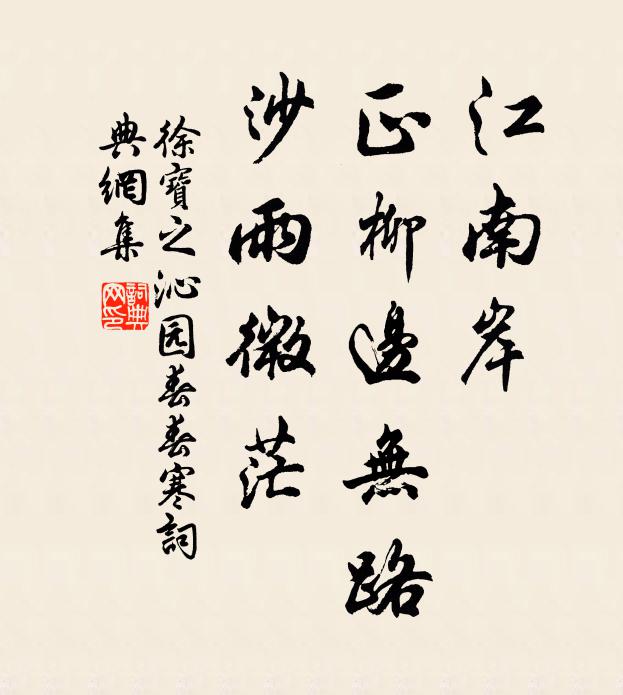 江南岸
正柳邊無路
沙雨微茫
徐寶之沁园春春寒詞
典網集
詞典
网印